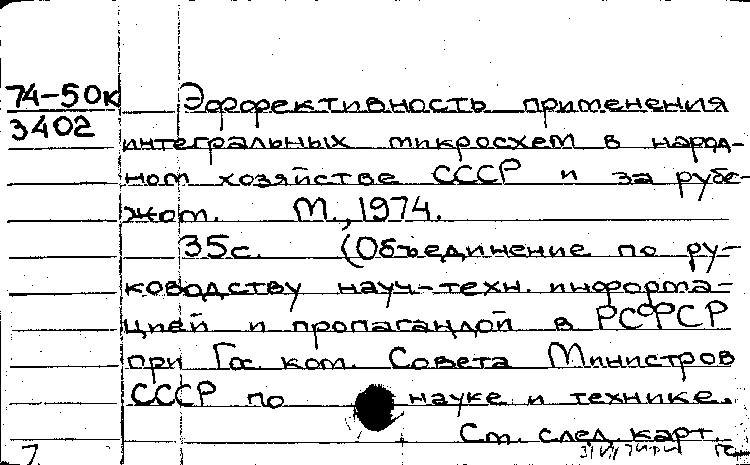 74-50к Эффективность применения
3402
интегральных микросхем в народ-
ном хозяйстве СССР и за рубе-
жом. М., 1974.
35с. (Объединение по ру-
ководству науч-техн. информа-
цией и пропагандой в РСФСР
при Гос. ком. Совета Министров
СССР по науке и технике.
См. след. карт.
7